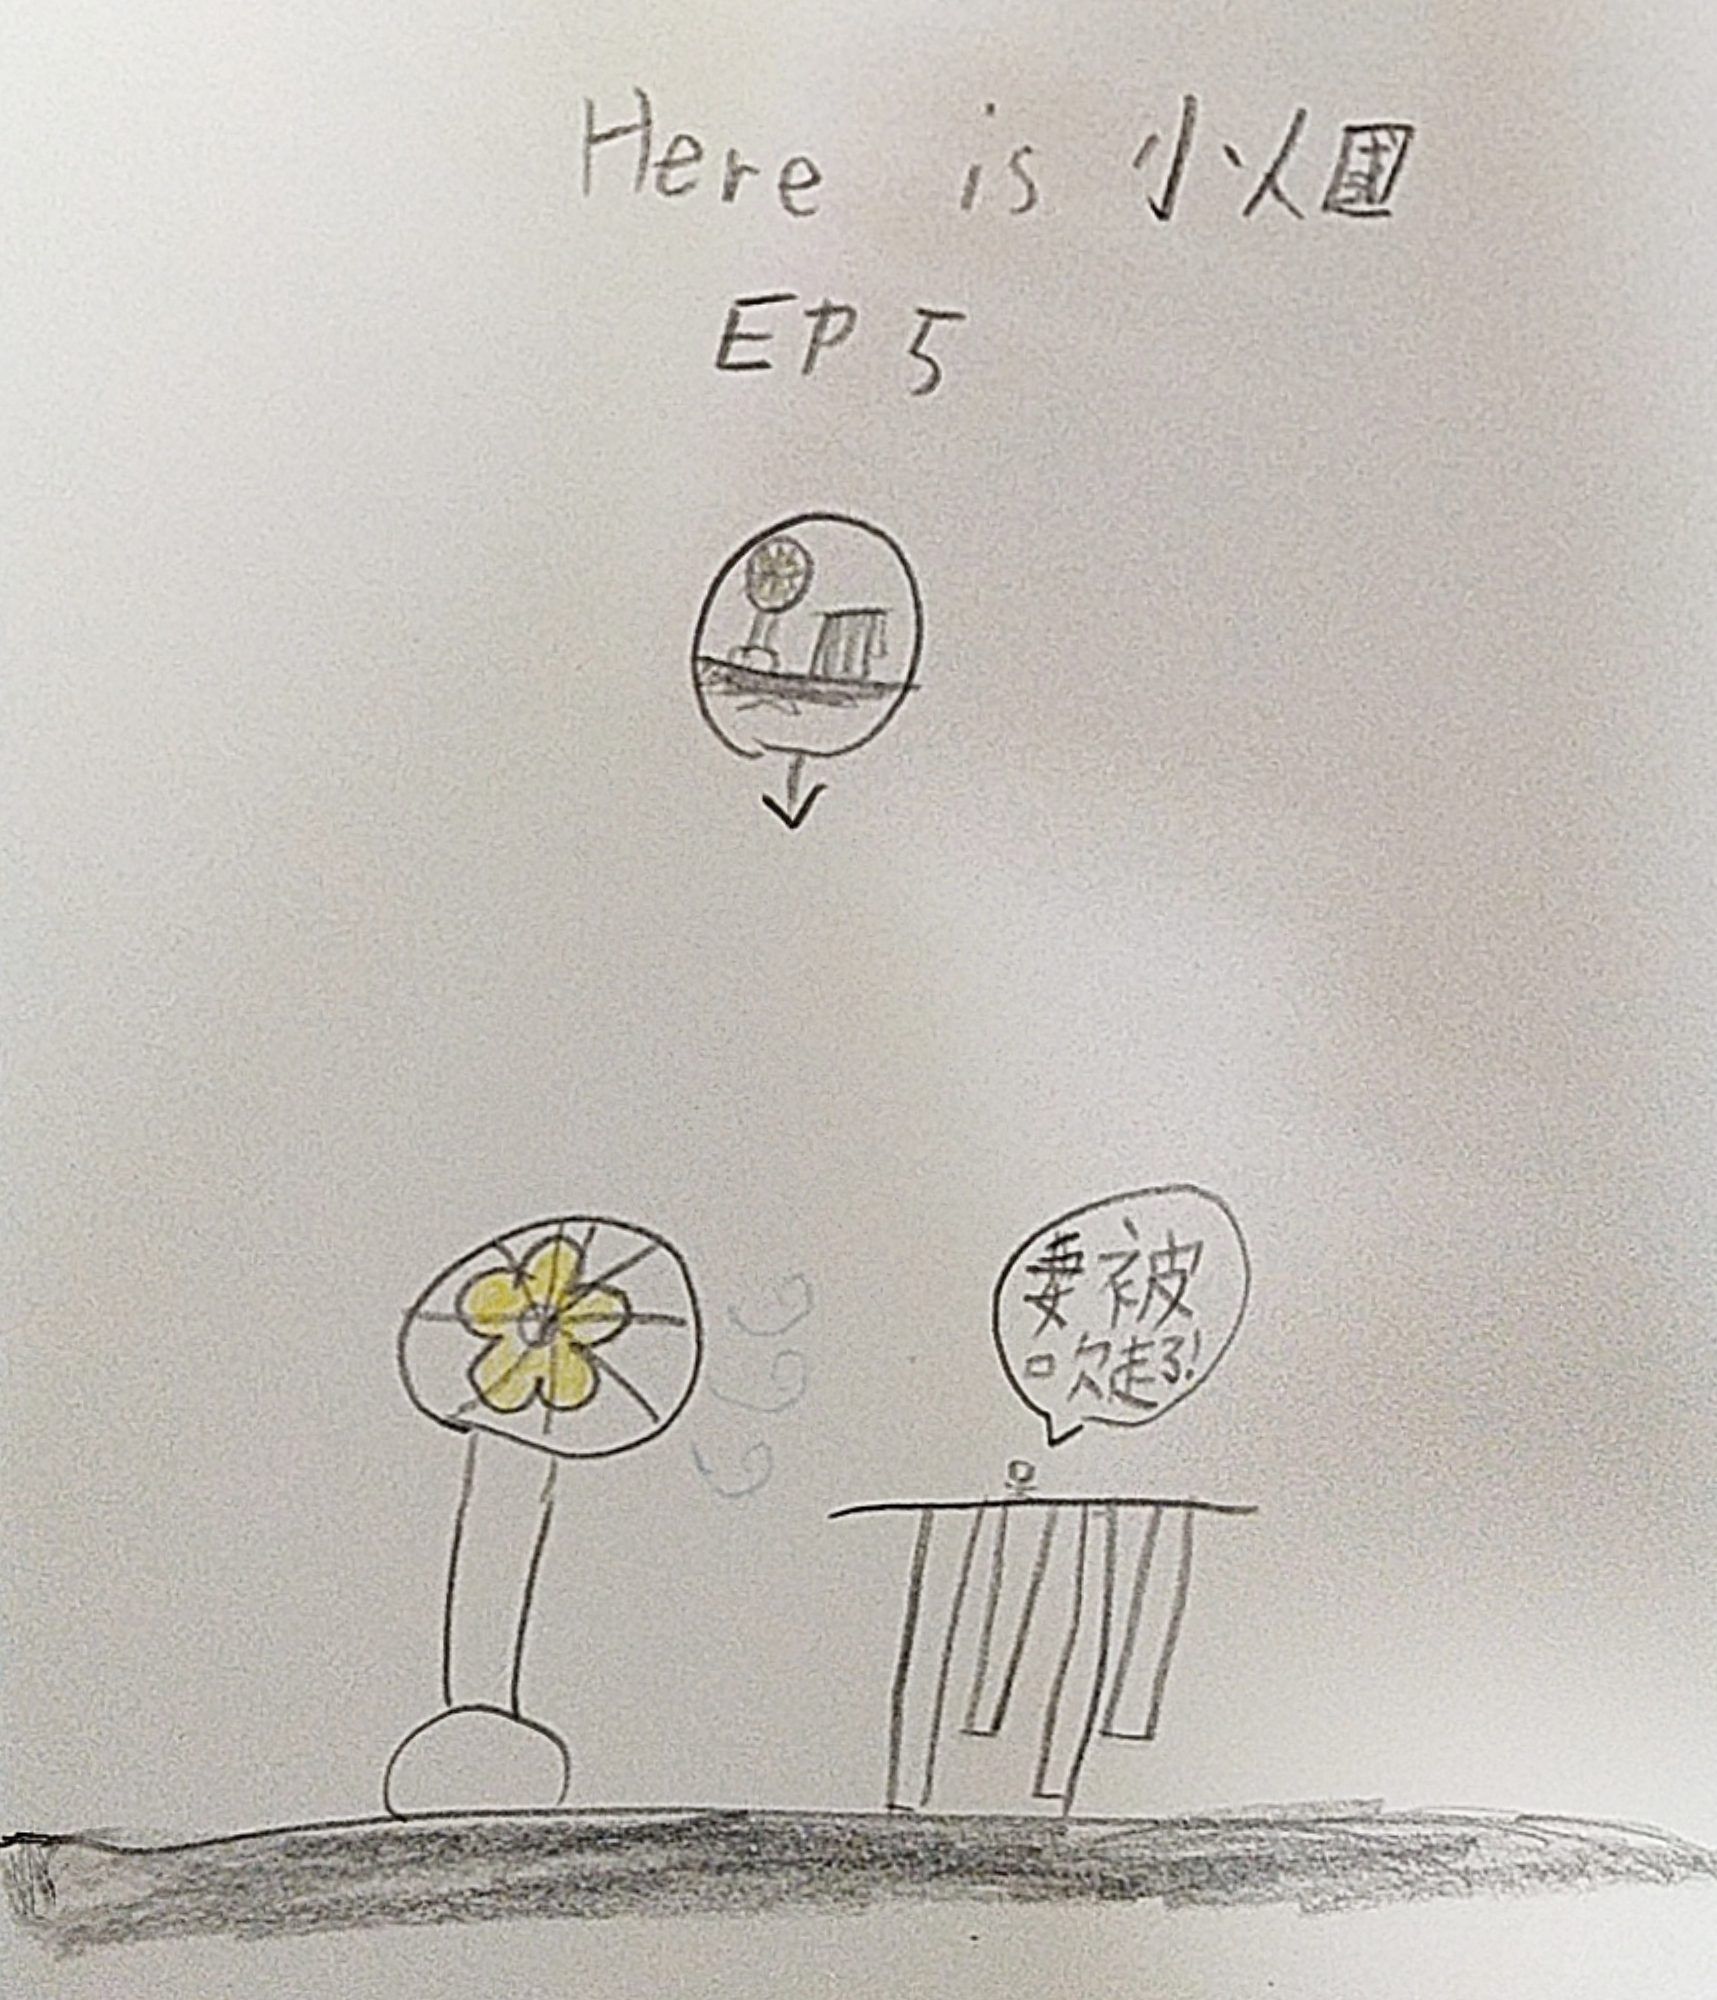 Here is 小人國
EP 5
要被
吹走了!